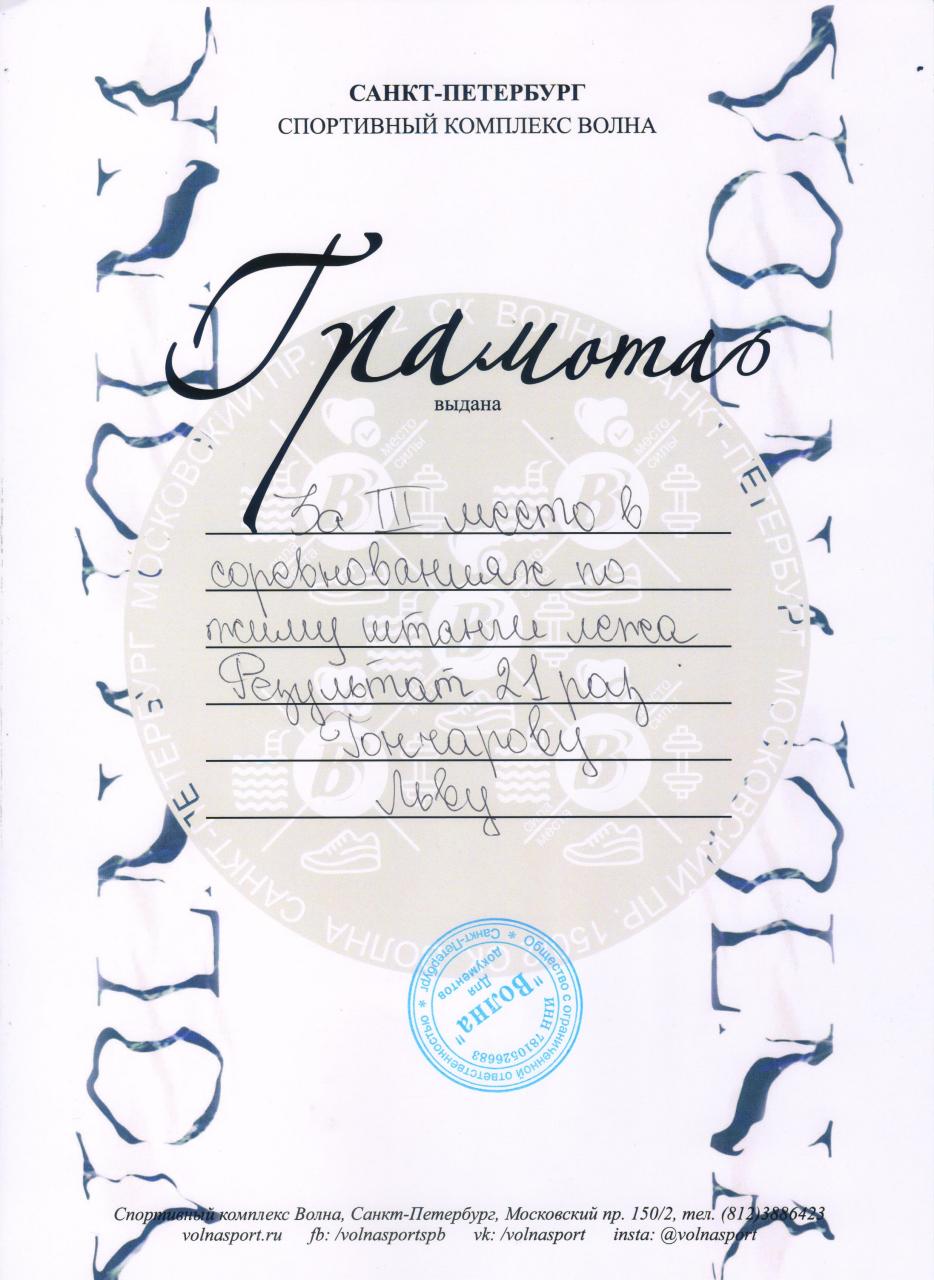 САНКТ-ПЕТЕРБУРГ
СПОРТИВНЫЙ КОМПЛЕКС ВОЛНА
Грамота
выдана
За III место в
соревнованиях по
жиму штанги лежа
Результат 21 раз
Гончарову
Льву
САНКТ-ПЕТЕРБУРГ МОСКОВСКИЙ ПР. 150/2 СК ВОЛНА САНКТ-ПЕТЕРБУРГ МОСКОВСКИЙ ПР. 150/2 СК ВОЛНА
место силы
сила места
В
Общество с ограниченной ответственностью * Санкт-Петербург *
ИНН 7810526683
"Волна"
Для
документов
Спортивный комплекс Волна, Санкт-Петербург, Московский пр. 150/2, тел. (812)3886423
volnasport.ru fb: /volnasportspb vk: /volnasport insta: @volnasport